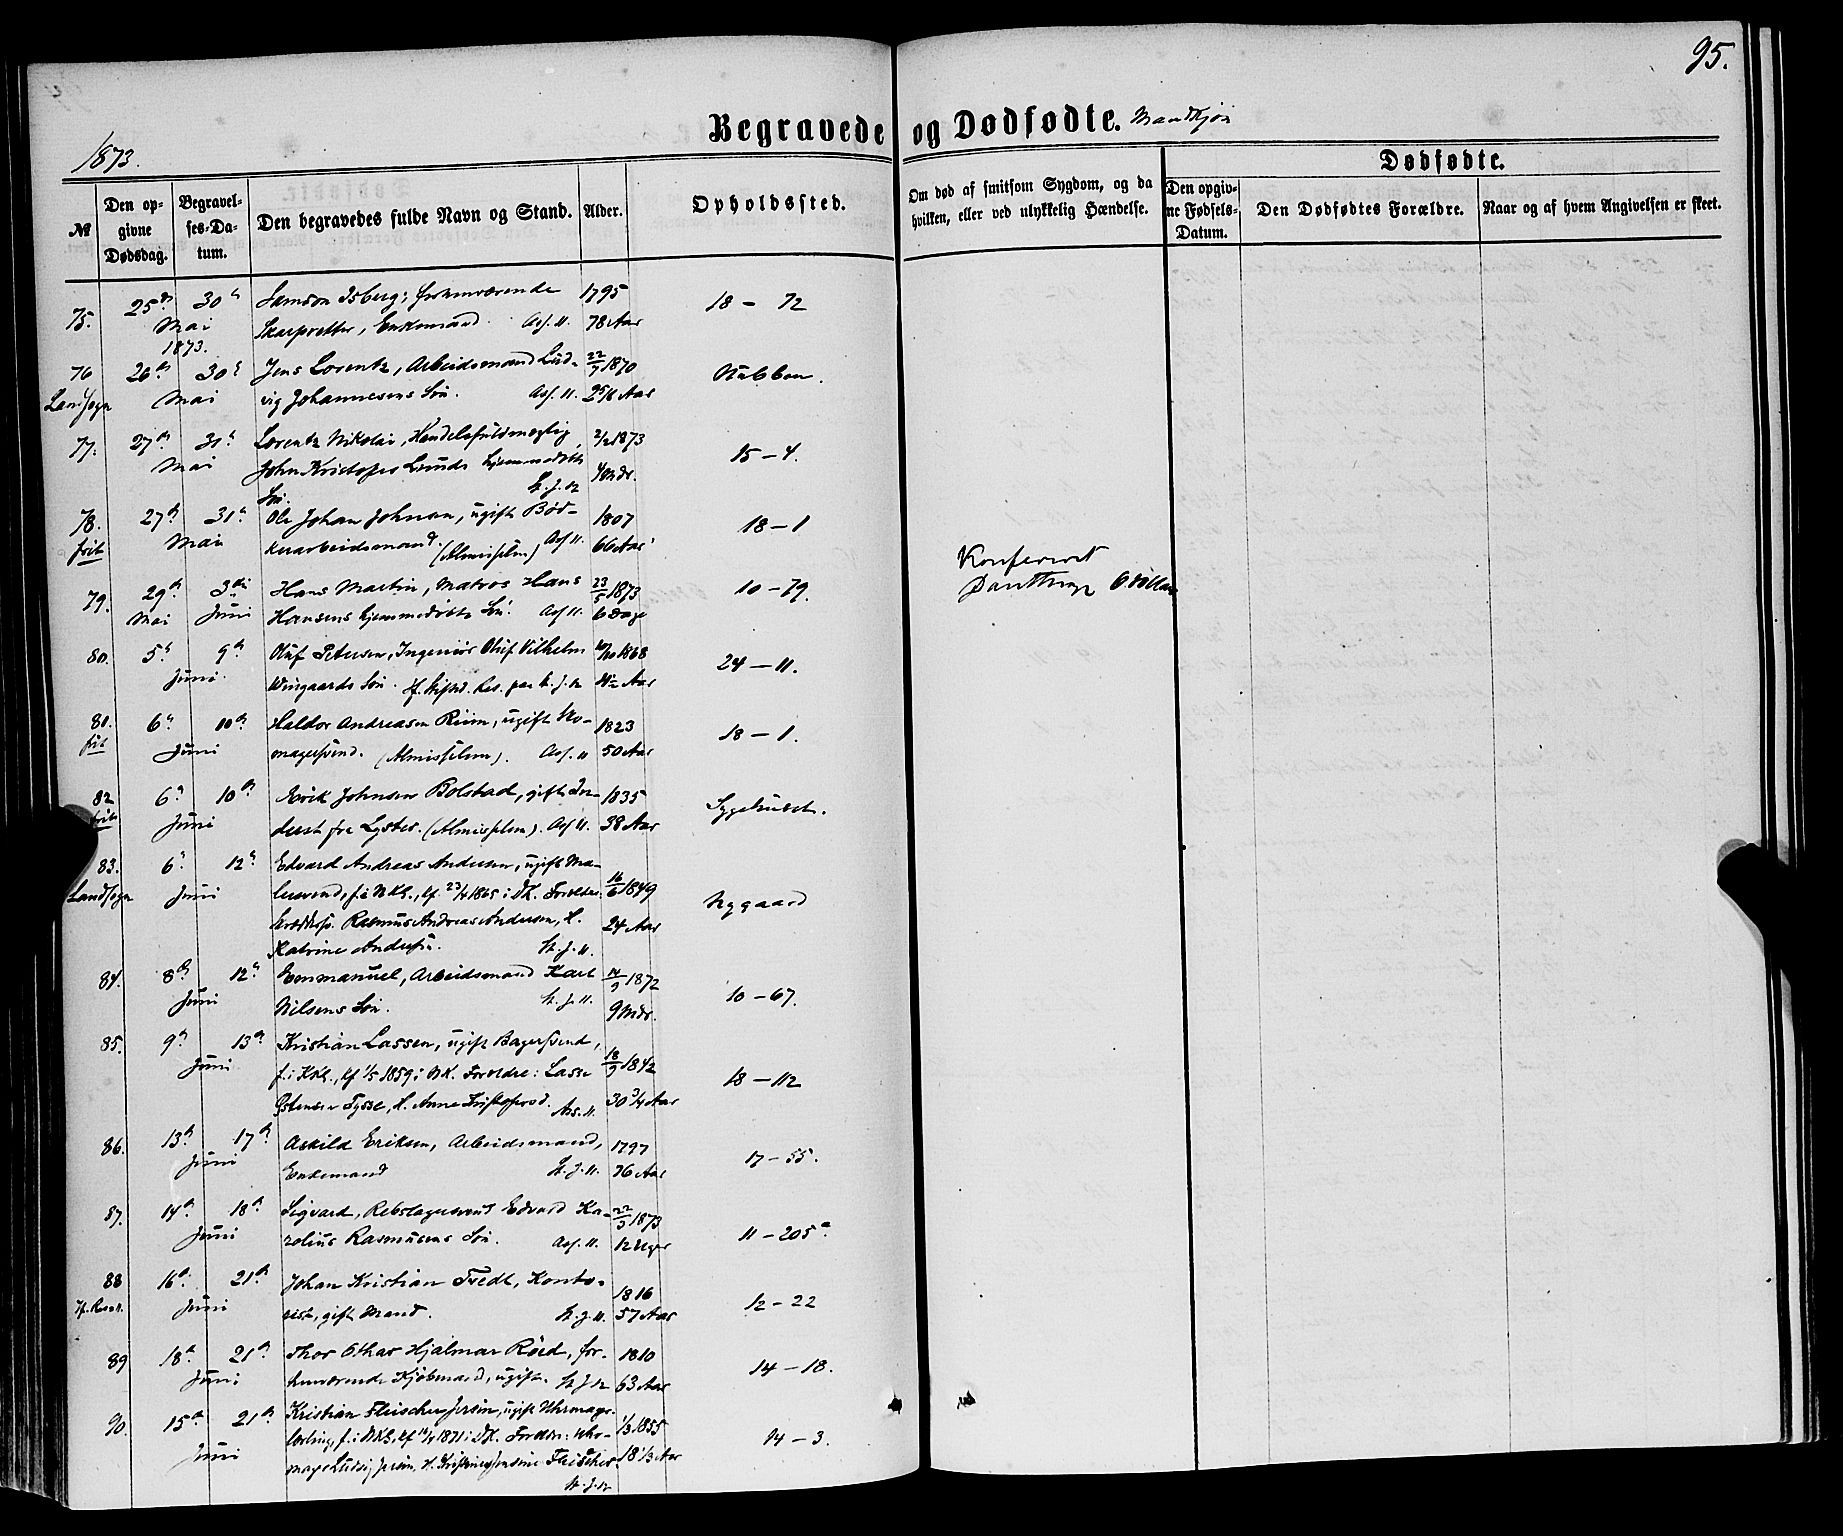 95.
Begravede og Dødfødte. Mandkjøn
1873.
Dødfødte.
№ Den opgivne Dødsdag. Begravelses-Datum. Den begravedes fulde Navn og Stand. Alder. Opholdssted. Om død af smitsom Sygdom, og da hvilken, eller ved ulykkelig Hændelse. Den opgivne Fødsels-Datum. Den Dødfødtes Forældre. Naar og af hvem Angivelsen er skeet.
75. 25de 30te Samson Isberg, forhenværende 1795 18 – 72
Mai 1873. Skarpretter, Enkemand. Ass. 11. 78 Aar
76 26de 30te Jens Lorentz, Arbeidsmand Lud- 22/7 1870 Nubben.
Landsogn Mai vig Johannesens Søn. Ass. 11. 2 5/6 Aar
77. 27de 31te Lorentz Nikolai, Handelsfuldmægtig 2/2 1873 15 – 4.
Mai John Kristofer Lunds hjemmedøbte 4 Mdr.
Søn. St. J. 12
78. 27de 31te Ole Johan Johnsen, ugift Bød- 1807 18 – 1
frit Mai kerarbeidsmand. (Almisselem) Ass 11. 66 Aar
79. 29de 3die Hans Martin, Matros Hans 23/5 1873 10 – 79.
Mai Juni Hansens hjemmedøbte Søn. Ass 11. 6 Dage
Konfereret
80. 5te 9de Oluf Petersen, Ingeniør Oluf Vilhelm 1868 24 – 11.
Juni Wingaards Søn. Aar
81. 6te 10de Haldor Andreasen Riim, ugift Sko- 1823 18 – 1.
frit Juni magersvend. (Almisselem). Ass. 11 50 Aar
82 6te 10de Erik Johnsen Bolstad, gift In- 1835 Sygehuset.
frit Juni derst fra Lyster. (Almisselem). Ass 11. 38 Aar
83. 6te 12te Edvard Andreas Andersen, ugift Ma- 16/6 1849 Nygaard
Landsogn Juni lersvend, f. i NKb., kf 23/4 1865 i DK. Forældre:
Rasmus Andreas Andersen, H. 24 Aar
Katrine Andersd. St. J. 11.
84. 8de 12te Emmanuel, Arbeidsmand Karl 14/9 1872 10 – 67.
Juni Nilsens Søn. St. J. 11. 9 Mdr.
85. 9de 13de Kristian Lassen, ugift Bagersvend, 18/9 1842 18 – 112
Juni f. i KKb., kf 1/5 1859 i NK. Forældre: Lasse
Østensen Tysse, H. Anne Kristofersd. Ass. 11. 30 3/4 Aar
86. 13de 17de Askild Eriksen, Arbeidsmand, 1797 17 – 55.
Juni Enkemand St. J. 11. 76 Aar
87. 14de 18de Sigvard, Rebslagersvend Edvard Ka- 22/3 1873 11 – 205a
Juni rolius Rasmusens Søn. Ass. 11. 12 Uger
88 16de 21de Johan Kristian Tredt, Konto- 1816 12 – 22
Juni rist, gift Mand. St. J. 11. 57 Aar
89 18de 21de Thor Othar Hjalmar Röed, for- 1810 14 – 18.
Juni henværende Kjøbmand, ugift. St J 12 63 Aar
90. 15de 21de Kristian Fleischer Jersin, ugift Uhrmager- 1/3 1855 14 – 3.
Juni lærling, f. i NKb, kf 1871 i DK. Forældre: Uhr-
mager Ludvig Jersin, H. Kristine Jensine Fleischer. 18 1/3 Aar
St. J. 12